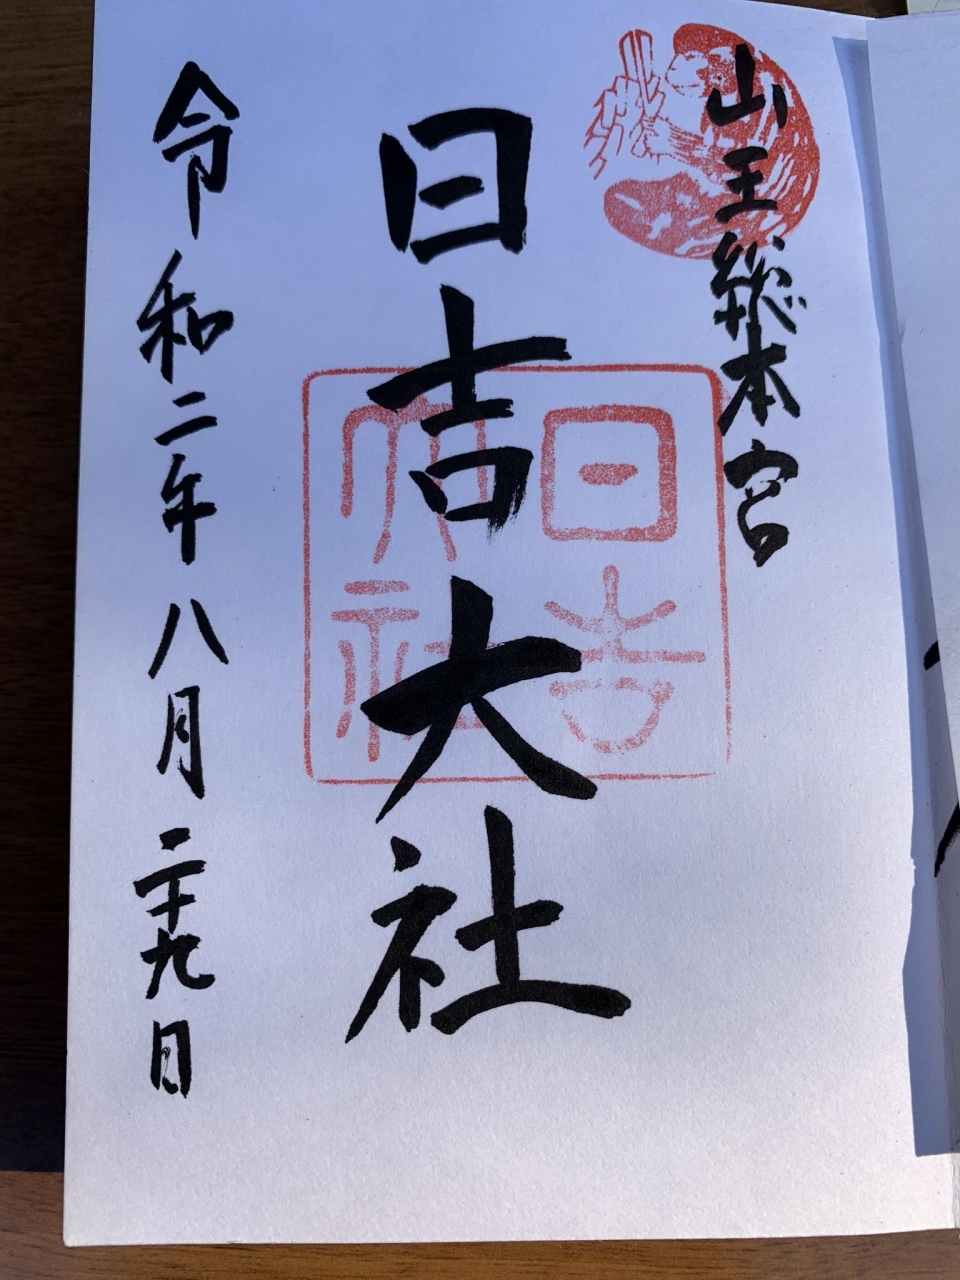 山王総本宮
日吉大社
日吉
大社
令和二年八月二十九日